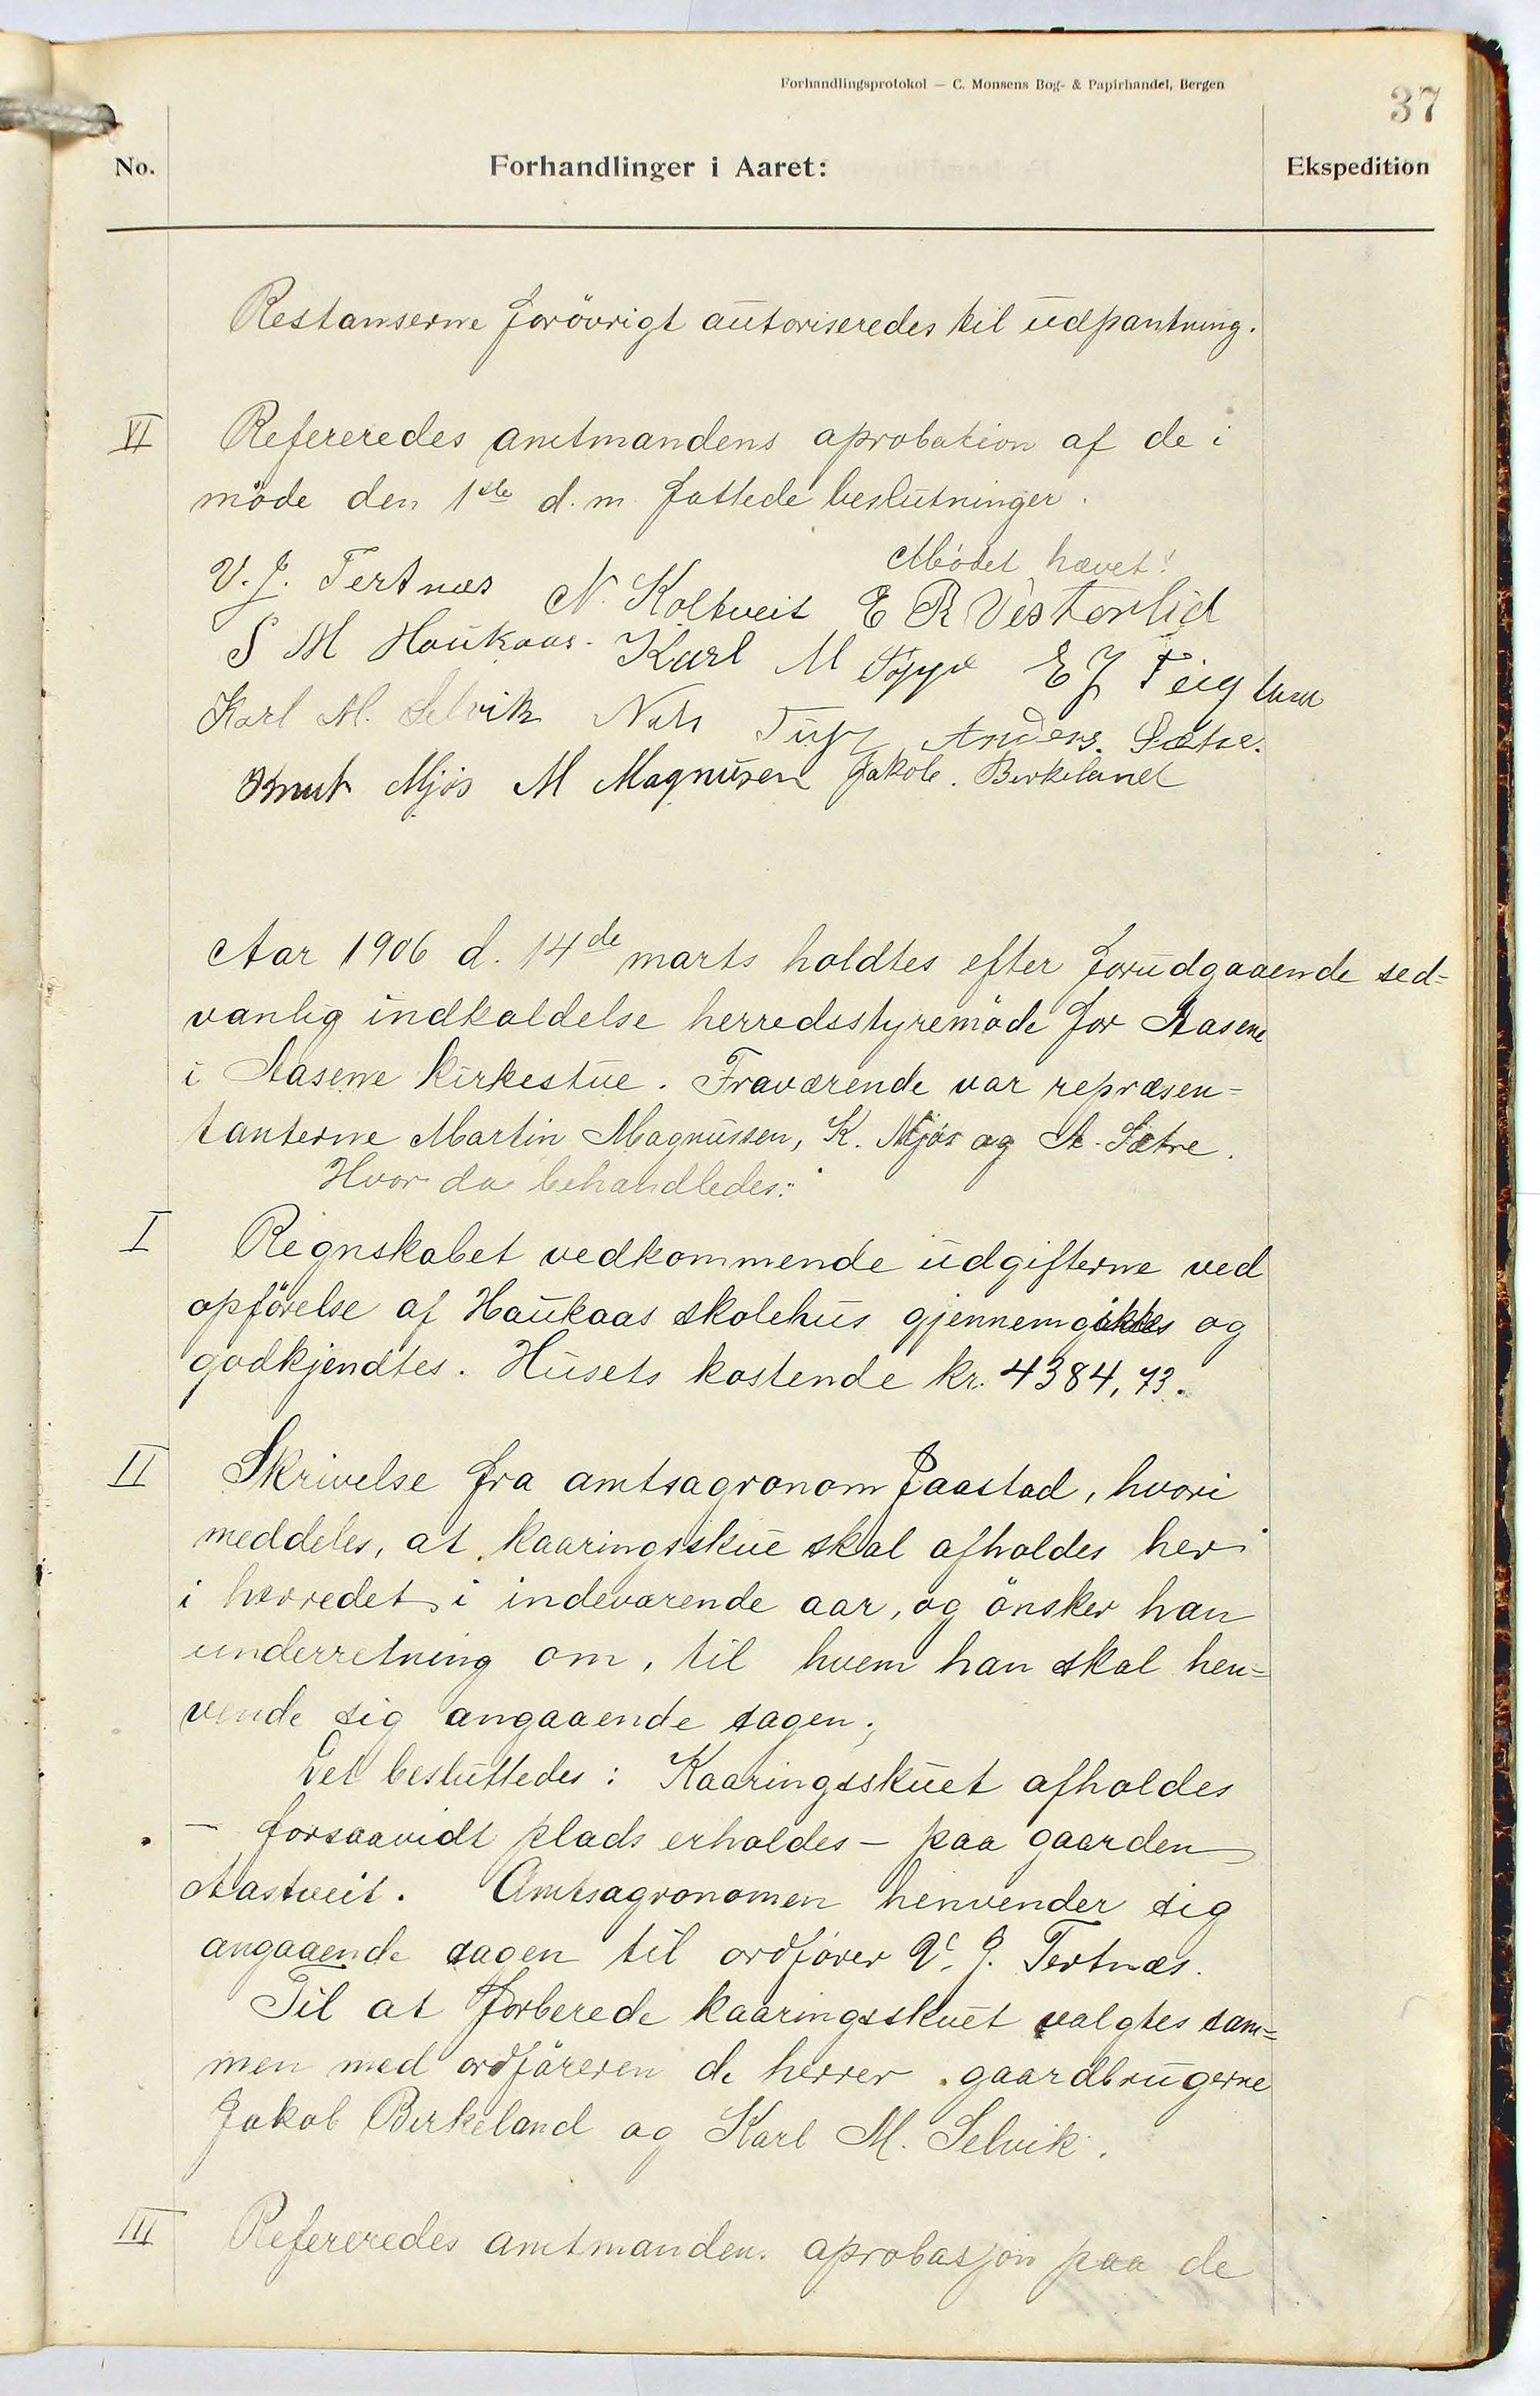 Forhandlingsprotokol — C. Monsens Bog- & Papirhandel, Bergen
37
No. Forhandlinger i Aaret: Ekspedition
Restanserne forövrigt autoriseredes til udpantning.
VI Refereredes amtmandens aprobation af de i
möde den 1ste d. m. fattede beslutninger.
Mödet hævet!
V. J. Tertnæs N. Koltveit E R Vesterlid
S M Haukaas. Karl M Toppe E J Teigland
Karl M. Selvik Nils Anders. Sætre.
Knut Mjös M Magnusen Jakob. Birkeland
Aar 1906 d. 14de marts holdtes efter forudgaaende sed-
vanlig indkaldelse herredsstyremöde for Aasene
i Aasene kirkestue. Fraværende var repræsen-
tanterne Martin Magnussen, K. Mjös og A. Sætre.
Hvor da behandledes:
I Regnskabet vedkommende udgifterne ved
opförelse af Haukaas skolehus gjennemgikkes og
godkjendtes. Husets kostende kr. 4384,73.
II Skrivelse fra amtsagronom Jaastad, hvori
meddeles, at kaaringsskue skal afholdes her
i herredet i indeværende aar, og önsker han
underretning om, til hvem han skal hen-
vende sig angaaende sagen;
Det besluttedes: Kaaringsskuet afholdes
- forsaavidt plads erholdes - paa gaarden
Aastveit. Amtsagronomen henvender sig
angaaende sagen til ordförer V. J. Tertnæs.
Til at forberede kaaringsskuet valgtes sam-
men med ordföreren de herrer gaardbrugerne
Jakob Birkeland og Karl M. Selvik.
III Refereredes amtmanden. aprobasjon paa de